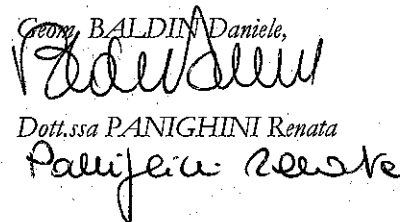 Geom. BALDIN Daniele,
Dott.ssa PANIGHINI Renata
Panighini Renata